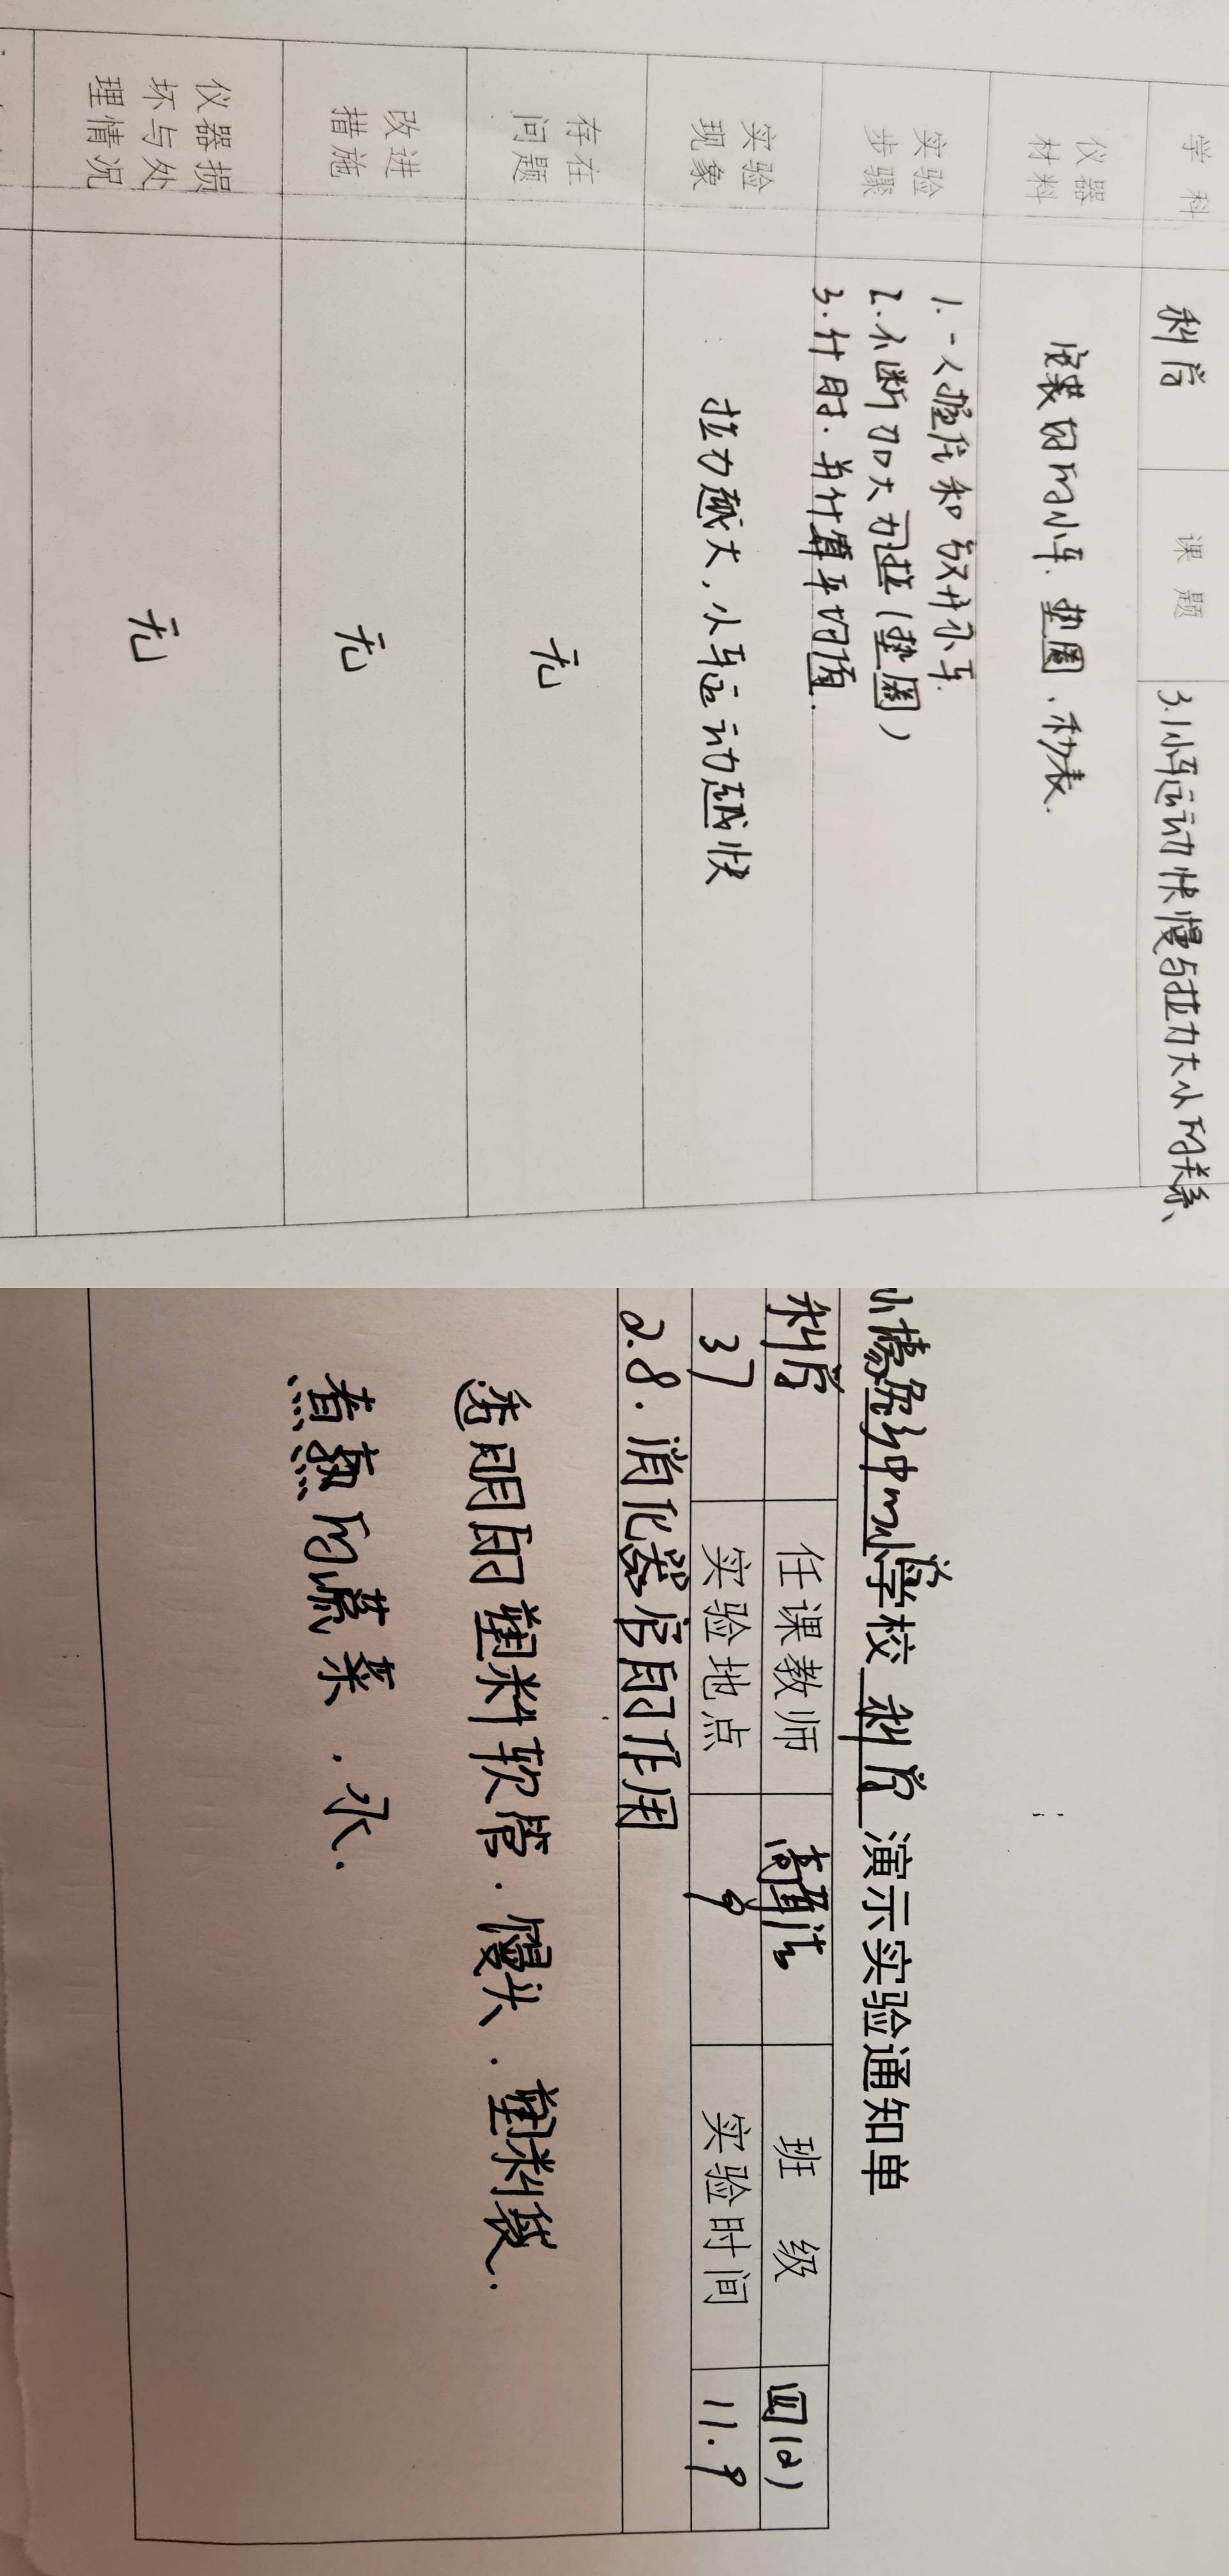 学 科 科学 课 题 3.1小车运动快慢与拉力大小的关系、
仪器
材料
安装的小车. 垫圈、秒表.
实验
步骤
1. 一人握住和放开小车.
2. 不断加大力拉(垫圈)
3. 计时. 并计算平均值.
实验
现象
拉力越大, 小车运动越快
存在
问题
无
改进
措施
无
仪器损
坏与处
理情况
无
学校 科学 演示实验通知单
科学 任课教师 班 级 四(2)
37 实验地点 9 实验时间 11.9
2.8. 消化器官的作用
透明的塑料软管. 馒头. 塑料袋.
煮熟的蔬菜. 水.